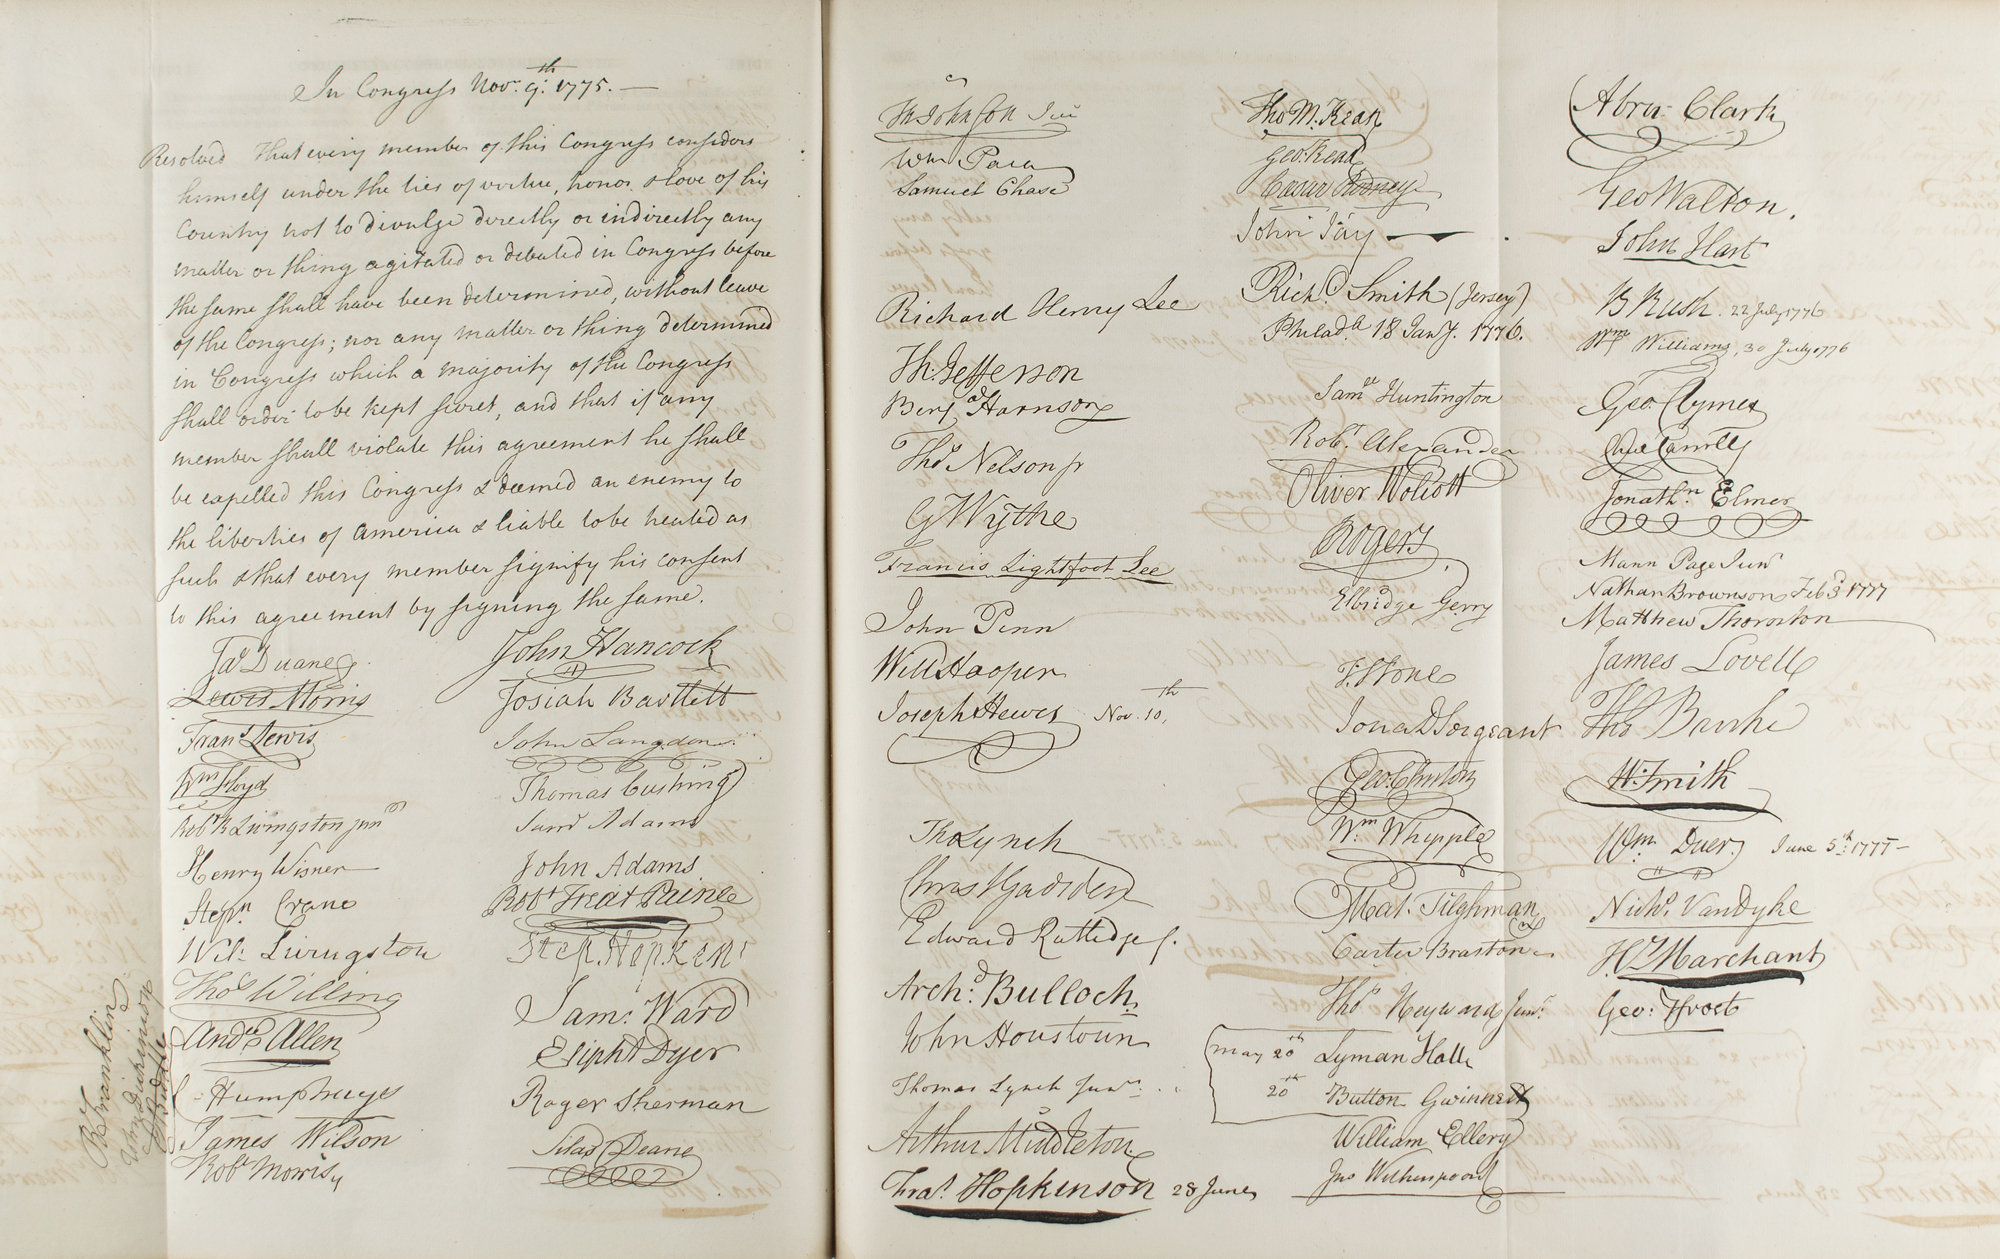 In Congress Nov.r 9.th 1775. —
Resolved That every member of this Congress considers
himself under the ties of virtue, honor & love of his
Country not to divulge directly or indirectly any
matter or thing agitated or debated in Congress before
the same shall have been determined, without leave
of the Congress; nor any matter or thing determined
in Congress which a majority of the Congress
shall order to be kept secret, and that if any
member shall violate this agreement he shall
be expelled this Congress & deemed an enemy to
the liberties of America & liable to be treated as
such & that every member signify his consent
to this agreement by signing the same.
Jas Duane
Lewis Morris
Frans Lewis
Wm Floyd
Robt R Livingston junr
Henry Wisner
Stepn Crane
Wil: Livingston
Thos Willing
Andw Allen
C Humphreys
James Wilson
Robt Morris
B Franklin
John Dickinson
John Hancock
Josiah Bartlett
John Langdon
Thomas Cushing
Saml Adams
John Adams
Robt Treat Paine
Step. Hopkins
Sam: Ward
Elipht Dyer
Roger Sherman
Silas Deane
Th Johnson Jun
Wm Paca
Samuel Chase
Richard Henry Lee
Th: Jefferson
Benja Harrison
Thos Nelson jr
G Wythe
Francis Lightfoot Lee
John Penn
Will Hooper
Joseph Hewes Nov. 10th,
Tho Lynch
Christ Gadsden
Edward Rutledge
Archd. Bulloch
John Houstoun
Thomas Lynch Junr.
Arthur Middleton
Fras. Hopkinson 28 June
Tho M:Kean
Geo: Read
Caesar Rodney
John Jay
Richd. Smith (Jersey)
Philada. 18 Jany. 1776.
Saml Huntington
Robt Alexander
Oliver Wolcott
Rogers
Elbridge Gerry
T. Stone
Jona D Sergeant
Geo. Clinton
Wm Whipple
Mat. Tilghman
Carter Braxton
Thos Heyward Junr.
May 20th Lyman Hall
20th Button Gwinnett
William Ellery
Jno Witherspoon
Abra: Clark
Geo Walton.
John Hart
B Rush. 22 July 1776
Wm Williams, 30 July 1776
Geo. Clymer
Chas Carroll
Jonathn. Elmer
Mann Page Junr
Nathan Brownson Feb 3d 1777
Matthew Thornton
James Lovell
Thos Burke
W. Smith
Wm. Duer June 5th: 1777 —
Nichs. VanDyke
Hy Marchant
Geo: Frost